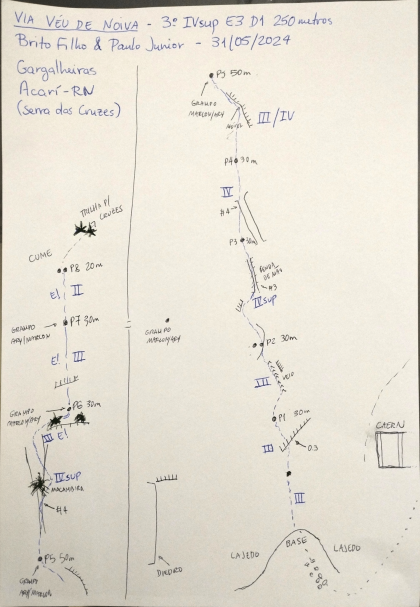 VIA VÉU DE NOIVA - 3º IVsup E3 D1 250 metros
Brito Filho & Paulo Junior - 31/05/2024
Gargalheiras
Acari-RN
(Serra das Cruzes)
TRILHA P/
CRUZES
CUME
P8 20m
E! II
GRAMPO
ARY/MARLON
P7 30m
E! III
GRAMPO
MARLON/ARY
P6 30m
III E!
IVsup
MACAMBIRA
#4
P5 50m
GRAMPO
ARY/MARLON
P5 50m
GRAMPO
MARLON/ARY
MÓVEL
III/IV
P4 30m
IV
#4
P3 30m
FENDA
DE MÃO
#3
IVsup
GRAMPO
MARLON/ARY
P2 30m
VEIO
III
P1 30m
II
0.3
III
CAERN
DIEDRO
BASE
LAJEDO
LAJEDO